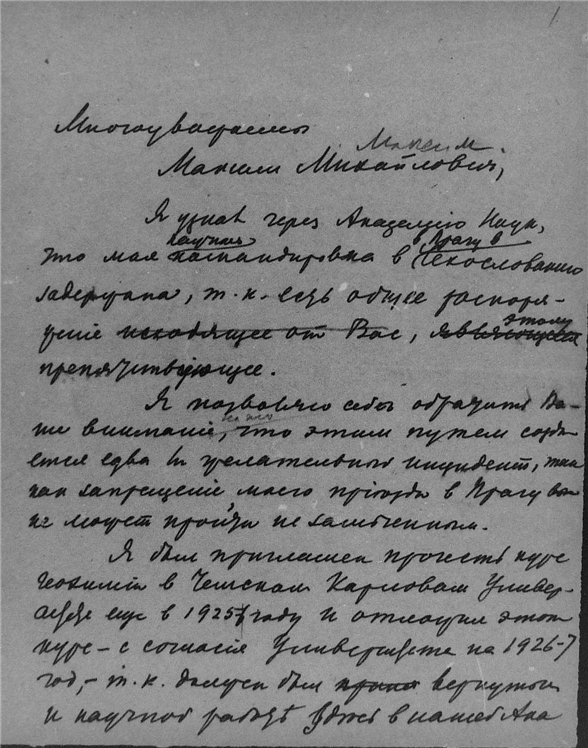 1
Многоуважаемый
Максим
Максим Михайлович,
Я узнав через Академию Наук,
научная в Прагу в
что моя командировка в Чехословакию
задержана, т.к. есть общее распоря-
этому
жение исходящее от Вас, являющееся
препятствующее.
Я позволяю себе обратить Ва-
ше внимание, что этим путем созда-
ется едва ли желательный инцидент, так
как запрещение моего приезда в Прагу
не может пройти не замеченным.
Я был приглашен прочесть курс
геохимии в Чешском Карловом Универ-
еще в 1925 году и отложил этот
курс – с согласия Университета на 1926-7
год, – т.к. должен был вернуться
к научной работе здесь в нашей Ака